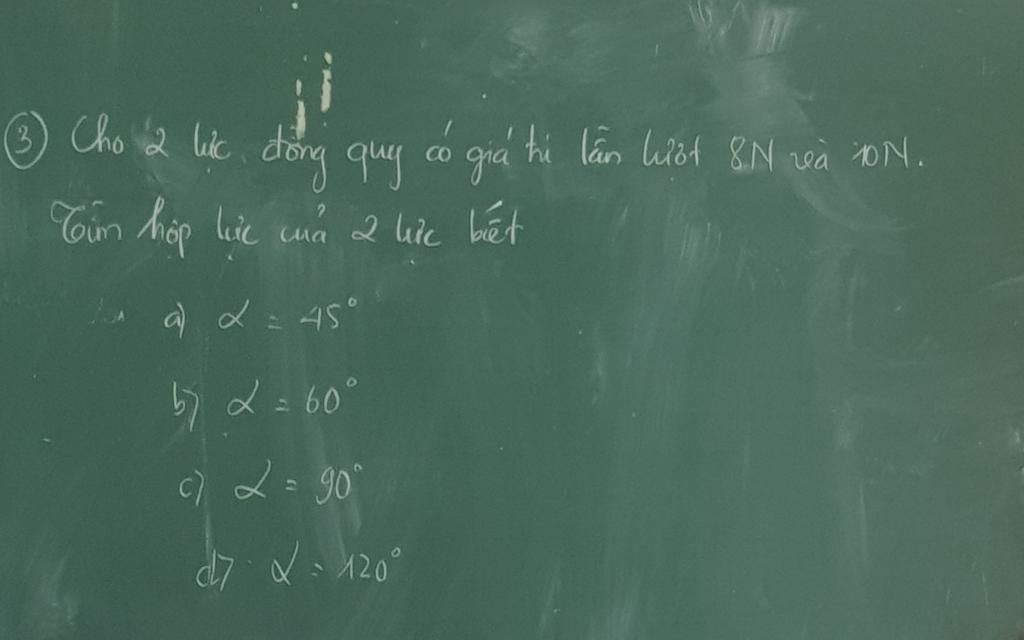 ③ Cho 2 lực đồng quy có giá trị lần lượt 8N và 10N.
Tìm hợp lực của 2 lực biết
a) α = 45°
b) α = 60°
c) α = 90°
d) α = 120°